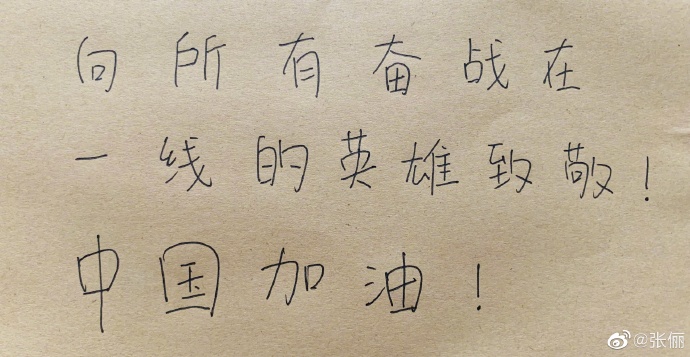 向所有奋战在
一线的英雄致敬！
中国加油！
@张俪